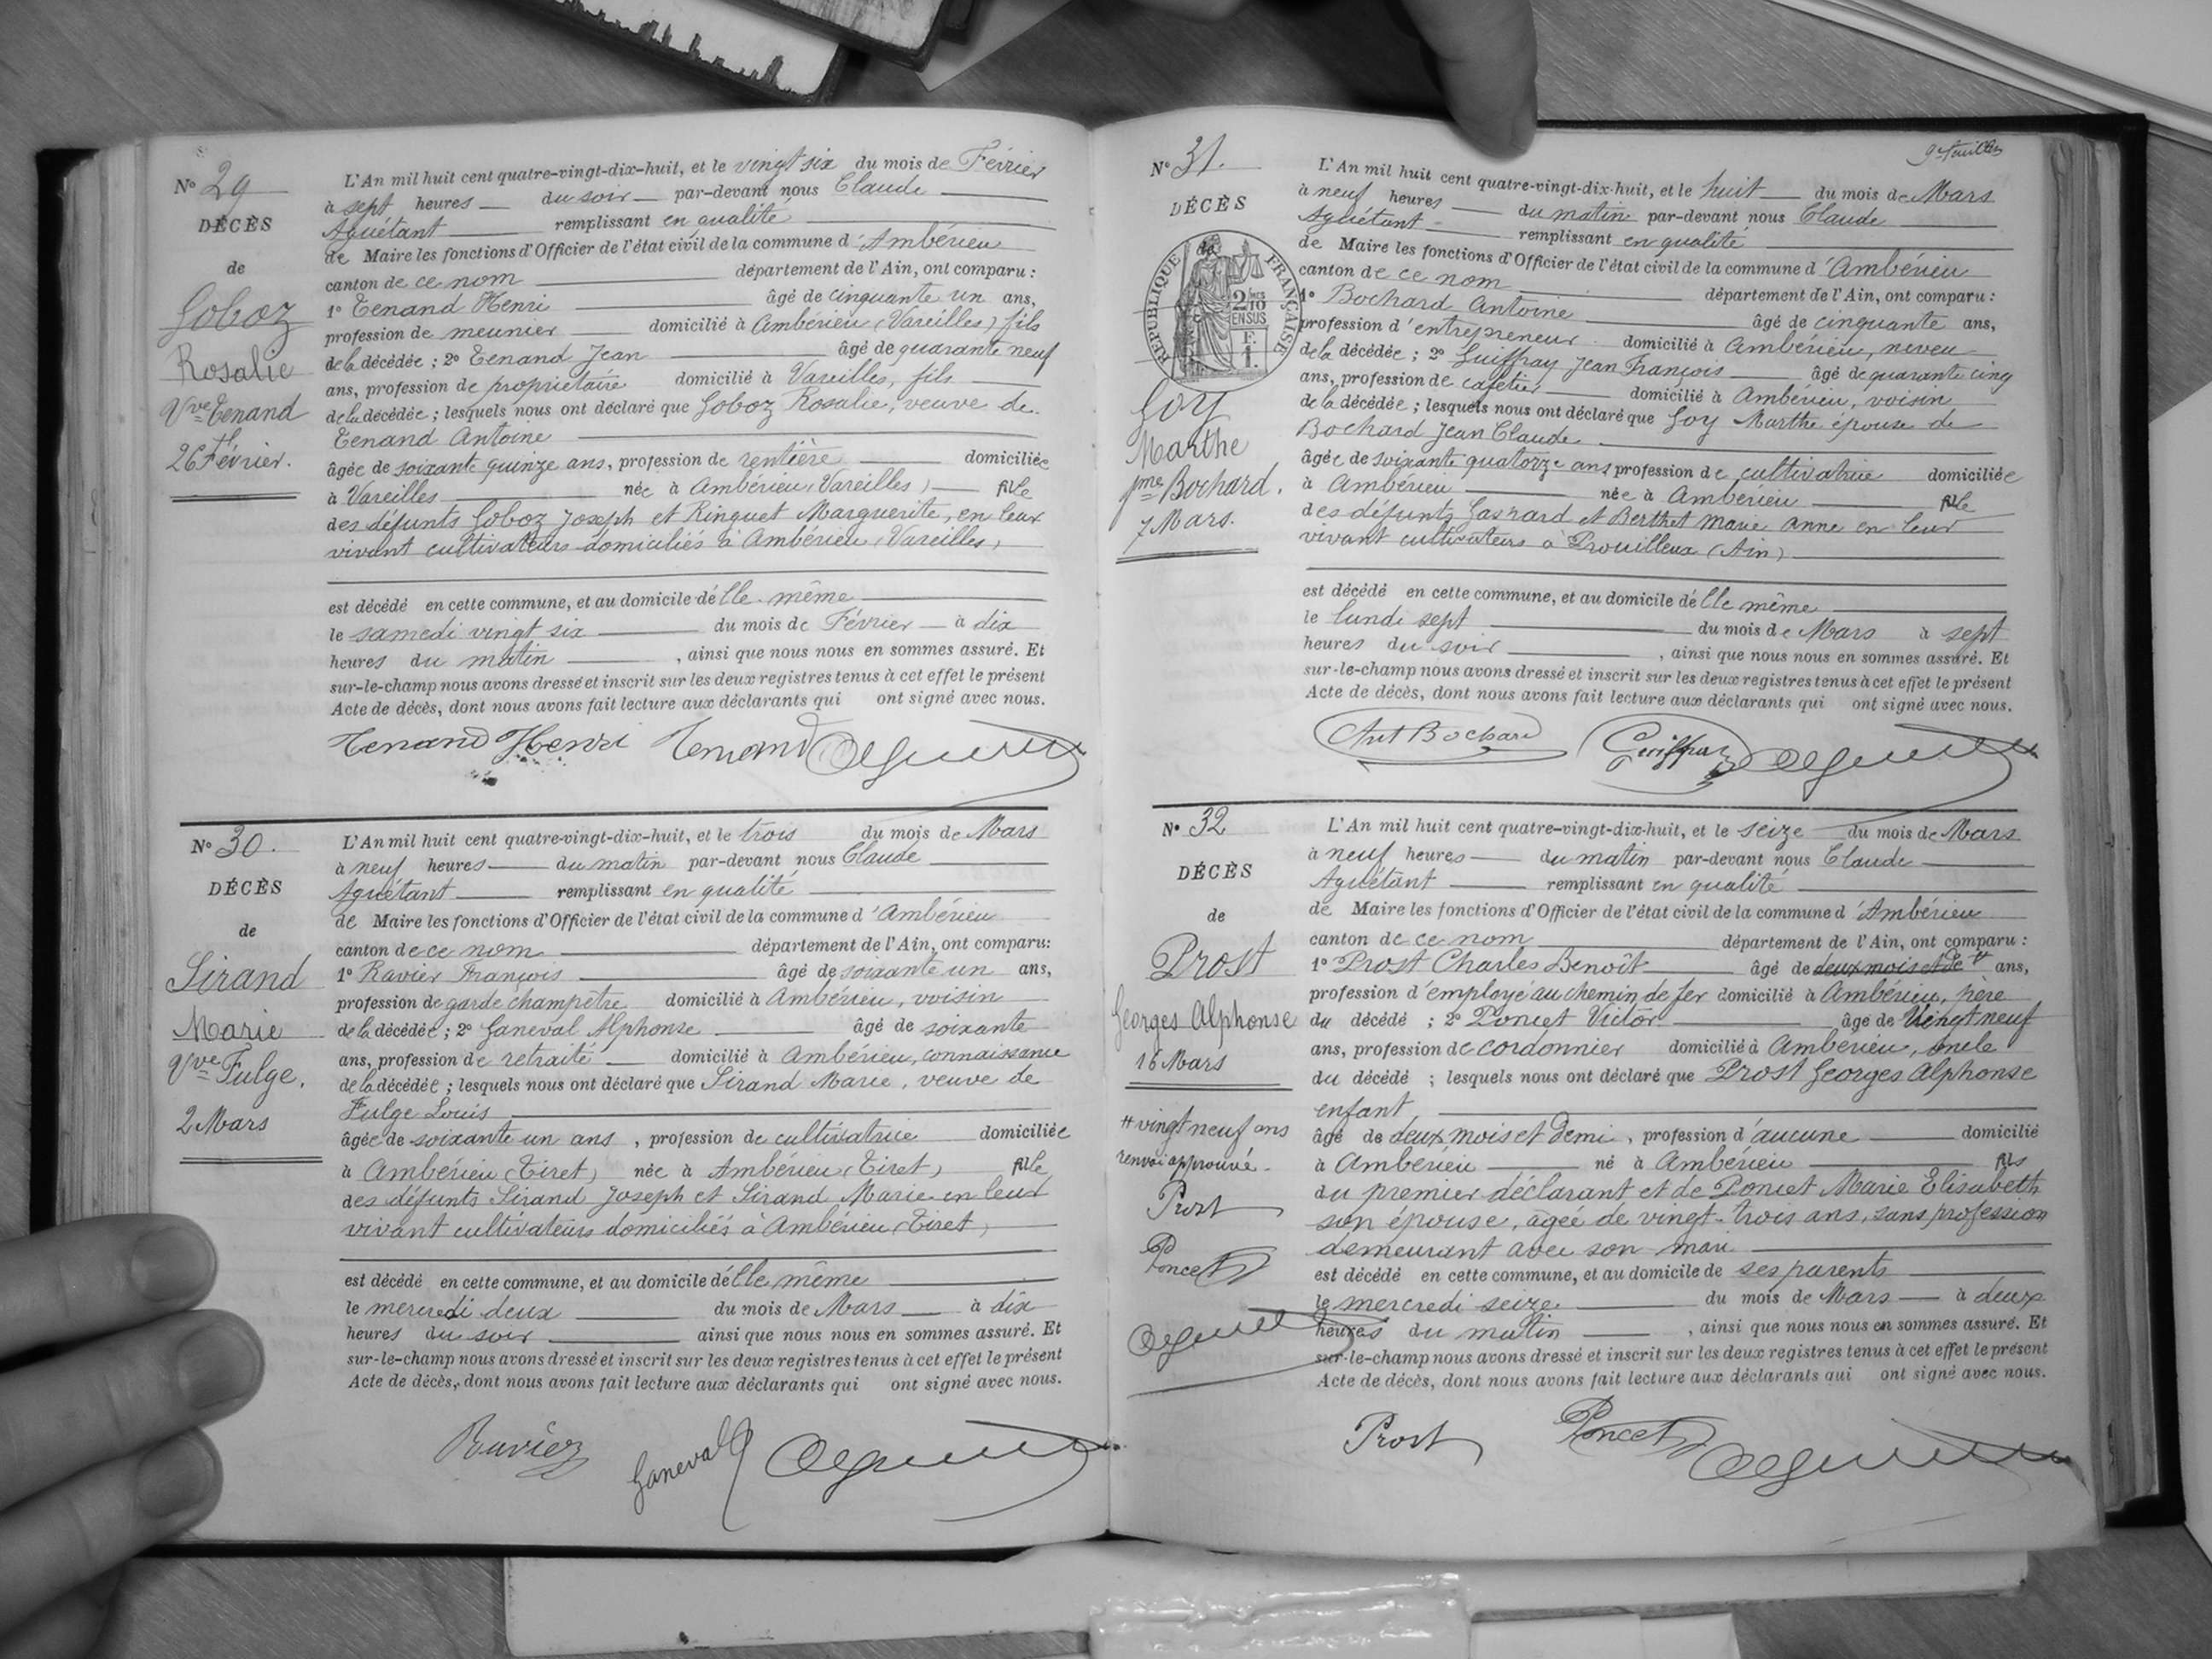 No 29
DÉCÈS
de
Goboz
Rosalie
Vve Tenand
26 Février.
L'An mil huit cent quatre-vingt-dix-huit, et le vingt six du mois de Février
à sept heures du soir par-devant nous Claude
Aguétant remplissant en qualité
de Maire les fonctions d'Officier de l'état civil de la commune d'Ambérieu
canton de ce nom département de l'Ain, ont comparu :
1o Tenand Henri âgé de cinquante un ans,
profession de meunier domicilié à Ambérieu (Vareilles) fils
de la décédée ; 2o Tenand Jean âgé de quarante neuf
ans, profession de propriétaire domicilié à Vareilles, fils
de la décédée ; lesquels nous ont déclaré que Goboz Rosalie, veuve de
Tenand Antoine
âgée de soixante quinze ans, profession de rentière domiciliée
à Vareilles née à Ambérieu (Vareilles) fille
des défunts Goboz Joseph et Ringuet Marguerite, en leur
vivant cultivateurs domiciliés à Ambérieu (Vareilles)
est décédé en cette commune, et au domicile d'elle même
le samedi vingt six du mois de Février à dix
heures du matin , ainsi que nous nous en sommes assuré. Et
sur-le-champ nous avons dressé et inscrit sur les deux registres tenus à cet effet le présent
Acte de décès, dont nous avons fait lecture aux déclarants qui ont signé avec nous.
Tenand Henri Tenand
No 30.
DÉCÈS
de
Sirand
Marie
Vve Fulge.
2 Mars
L'An mil huit cent quatre-vingt-dix-huit, et le trois du mois de Mars
à neuf heures du matin par-devant nous Claude
Aguétant remplissant en qualité
de Maire les fonctions d'Officier de l'état civil de la commune d'Ambérieu
canton de ce nom département de l'Ain, ont comparu:
1o Ravier François âgé de soixante un ans,
profession de garde champêtre domicilié à Ambérieu, voisin
de la décédée ; 2o Ganeval Alphonse âgé de soixante
ans, profession de retraité domicilié à Ambérieu, connaissance
de la décédée ; lesquels nous ont déclaré que Sirand Marie, veuve de
Fulge Louis
âgée de soixante un ans , profession de cultivatrice domiciliée
à Ambérieu (Tiret) née à Ambérieu (Tiret) fille
des défunts Sirand Joseph et Sirand Marie en leur
vivant cultivateurs domiciliés à Ambérieu (Tiret)
est décédé en cette commune, et au domicile d'elle même
le mercredi deux du mois de Mars à dix
heures du soir ainsi que nous nous en sommes assuré. Et
sur-le-champ nous avons dressé et inscrit sur les deux registres tenus à cet effet le présent
Acte de décès, dont nous avons fait lecture aux déclarants qui ont signé avec nous.
Ravier Ganeval
9e feuillet
No 31.
DÉCÈS
de
RÉPUBLIQUE FRANÇAISE
2/10mes
EN SUS
F.
1.
Goy
Marthe
fme Bochard.
7 Mars.
L'An mil huit cent quatre-vingt-dix-huit, et le huit du mois de Mars
à neuf heures du matin par-devant nous Claude
Aguétant remplissant en qualité
de Maire les fonctions d'Officier de l'état civil de la commune d'Ambérieu
canton de ce nom département de l'Ain, ont comparu :
1o Bochard Antoine âgé de cinquante ans,
profession d'entrepreneur domicilié à Ambérieu, neveu
de la décédée ; 2o Guiffray Jean François âgé de quarante cinq
ans, profession de cafetier domicilié à Ambérieu, voisin
de la décédée ; lesquels nous ont déclaré que Goy Marthe épouse de
Bochard Jean Claude
âgée de soixante quatorze ans profession de cultivatrice domiciliée
à Ambérieu née à Ambérieu fille
des défunts et Berthet Marie Anne en leur
vivant cultivateurs à (Ain)
est décédé en cette commune, et au domicile d'elle même
le lundi sept du mois de Mars à sept
heures du soir , ainsi que nous nous en sommes assuré. Et
sur-le-champ nous avons dressé et inscrit sur les deux registres tenus à cet effet le présent
Acte de décès, dont nous avons fait lecture aux déclarants qui ont signé avec nous.
Ant Bochard Guiffray
No 32
DÉCÈS
de
Prost
Georges Alphonse
16 Mars
# vingt neuf ans
renvoi approuvé.
Prost
Poncet
L'An mil huit cent quatre-vingt-dix-huit, et le seize du mois de Mars
à neuf heures du matin par-devant nous Claude
Aguétant remplissant en qualité
de Maire les fonctions d'Officier de l'état civil de la commune d'Ambérieu
canton de ce nom département de l'Ain, ont comparu :
1o Prost Charles Benoît âgé de deux mois et de # ans,
profession d'employé au chemin de fer domicilié à Ambérieu, père
du décédé ; 2o Poncet Victor âgé de vingt neuf
ans, profession de cordonnier domicilié à Ambérieu, oncle
du décédé ; lesquels nous ont déclaré que Prost Georges Alphonse
enfant
âgé de deux mois et demi , profession d'aucune domicilié
à Ambérieu né à Ambérieu fils
du premier déclarant et de Poncet Marie Elisabeth
son épouse, âgée de vingt-trois ans, sans profession
demeurant avec son mari
est décédé en cette commune, et au domicile de ses parents
le mercredi seize du mois de Mars à deux
heures du matin , ainsi que nous nous en sommes assuré. Et
sur-le-champ nous avons dressé et inscrit sur les deux registres tenus à cet effet le présent
Acte de décès, dont nous avons fait lecture aux déclarants qui ont signé avec nous.
Prost Poncet